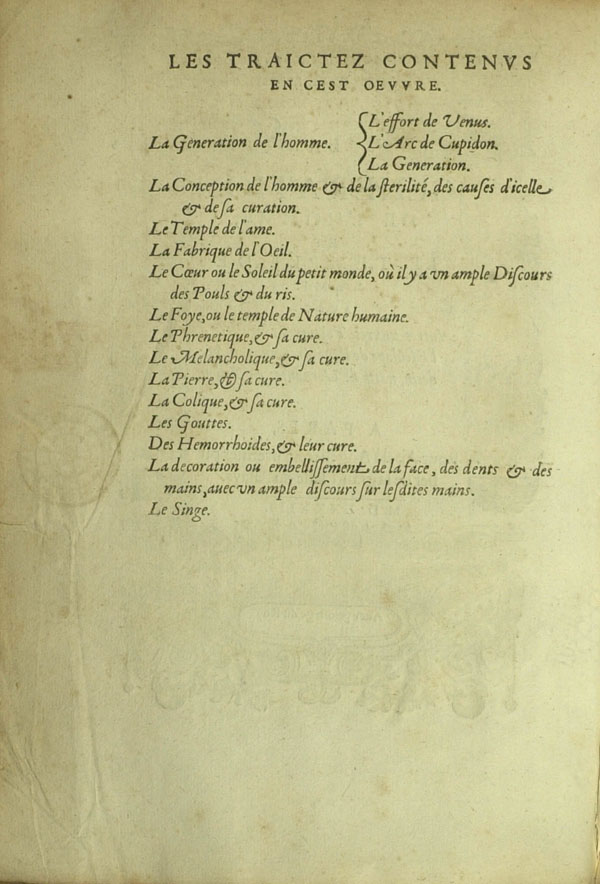 LES TRAICTEZ CONTENVS
EN CEST OEVVRE.
L'effort de Venus.
La Generation de l'homme. { L'Arc de Cupidon.
La Generation.
La Conception de l'homme & de la ſterilité, des cauſes d'icelle
& de ſa curation.
Le Temple de l'ame.
La Fabrique de l'Oeil.
Le Cœur ou le Soleil du petit monde, où il y a vn ample Diſcours
des Pouls & du ris.
Le Foye, ou le temple de Nature humaine.
Le Phrenetique, & ſa cure.
Le Melancholique, & ſa cure.
La Pierre, & ſa cure.
La Colique, & ſa cure.
Les Gouttes.
Des Hemorrhoides, & leur cure.
La decoration ou embelliſſement de la face, des dents & des
mains, auec vn ample diſcours ſur leſdites mains.
Le Singe.